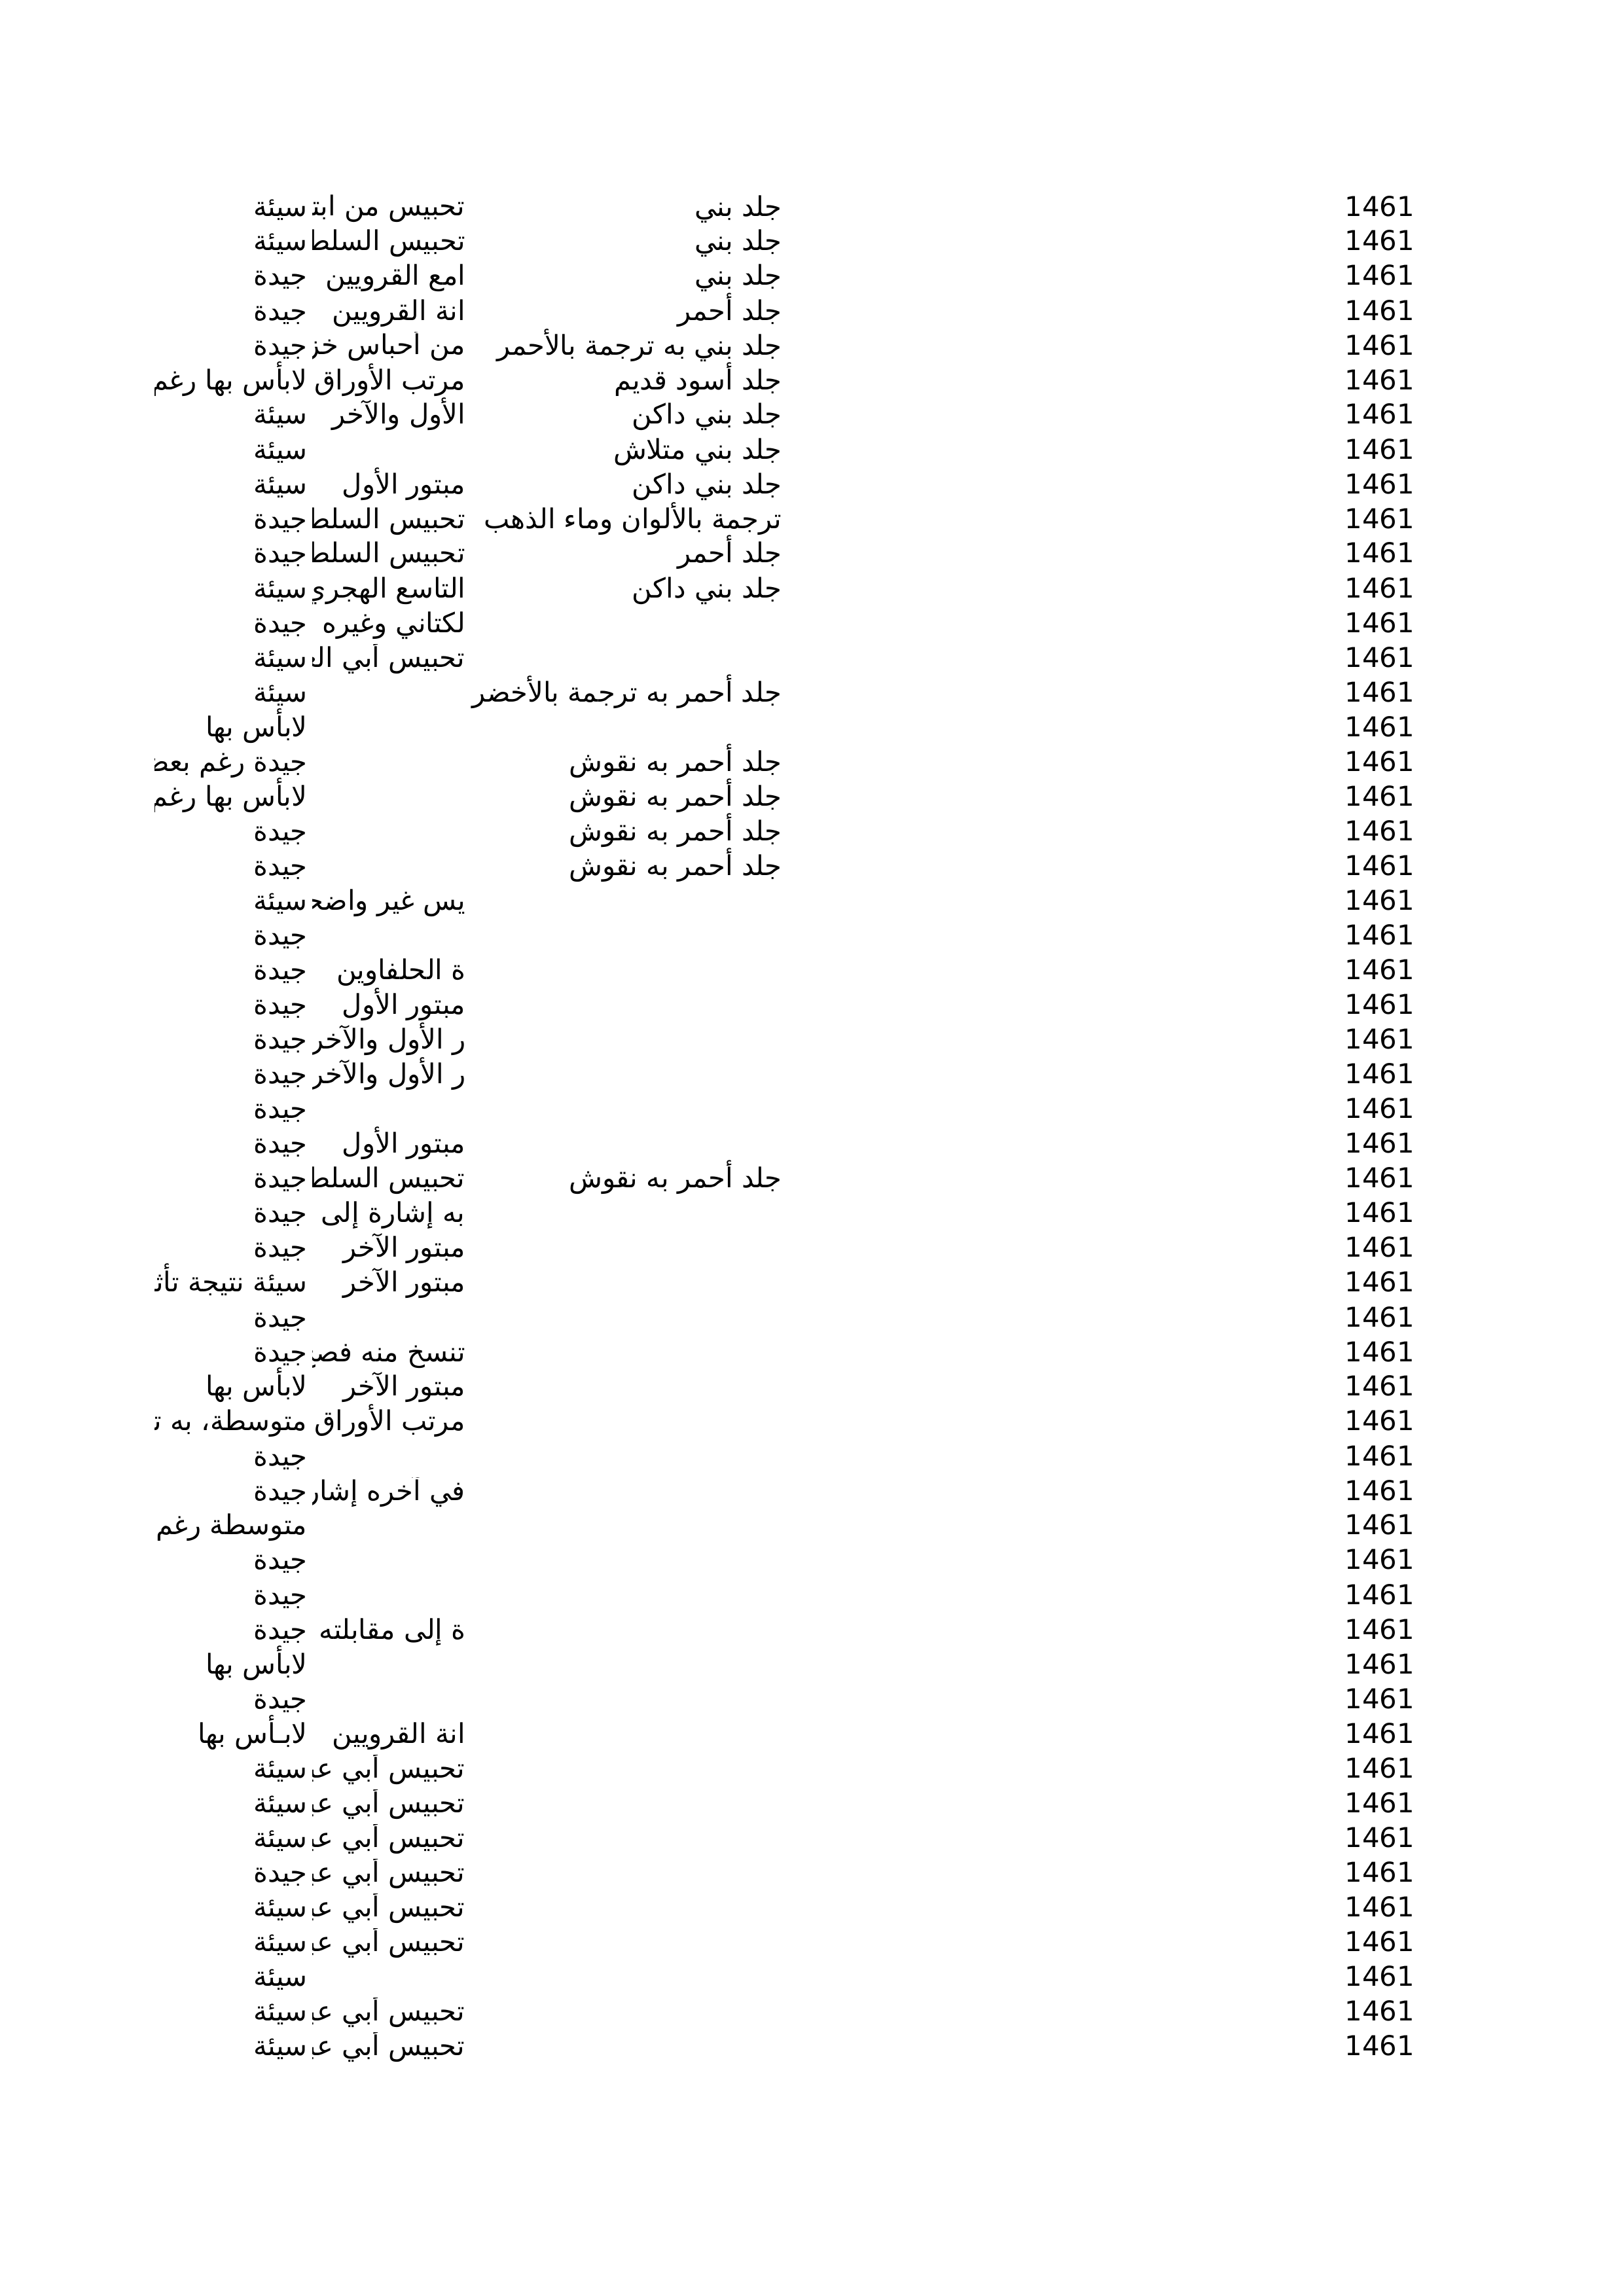 1461 جلد بني تحبيس من ابت سيئة
1461 جلد بني تحبيس السلط سيئة
1461 جلد بني امع القرويين جيدة
1461 جلد أحمر انة القرويين جيدة
1461 جلد بني به ترجمة بالأحمر من أحباس خز جيدة
1461 جلد أسود قديم مرتب الأوراق لابأس بها رغم
1461 جلد بني داكن الأول والآخر سيئة
1461 جلد بني متلاش سيئة
1461 جلد بني داكن مبتور الأول سيئة
1461 ترجمة بالألوان وماء الذهب تحبيس السلط جيدة
1461 جلد أحمر تحبيس السلط جيدة
1461 جلد بني داكن التاسع الهجري سيئة
1461 لكتاني وغيره جيدة
1461 تحبيس أبي الع سيئة
1461 جلد أحمر به ترجمة بالأخضر سيئة
1461 لابأس بها
1461 جلد أحمر به نقوش جيدة رغم بعض
1461 جلد أحمر به نقوش لابأس بها رغم
1461 جلد أحمر به نقوش جيدة
1461 جلد أحمر به نقوش جيدة
1461 يس غير واضح سيئة
1461 جيدة
1461 ة الحلفاوين جيدة
1461 مبتور الأول جيدة
1461 ر الأول والآخر جيدة
1461 ر الأول والآخر جيدة
1461 جيدة
1461 مبتور الأول جيدة
1461 جلد أحمر به نقوش تحبيس السلط جيدة
1461 به إشارة إلى جيدة
1461 مبتور الآخر جيدة
1461 مبتور الآخر سيئة نتيجة تأث
1461 جيدة
1461 تنسخ منه فصح جيدة
1461 مبتور الآخر لابأس بها
1461 مرتب الأوراق متوسطة، به ت
1461 جيدة
1461 في آخره إشار جيدة
1461 متوسطة رغم
1461 جيدة
1461 جيدة
1461 ة إلى مقابلته جيدة
1461 لابأس بها
1461 جيدة
1461 انة القرويين لابـأس بها
1461 تحبيس أبي عب سيئة
1461 تحبيس أبي عب سيئة
1461 تحبيس أبي عب سيئة
1461 تحبيس أبي عب جيدة
1461 تحبيس أبي عب سيئة
1461 تحبيس أبي عب سيئة
1461 سيئة
1461 تحبيس أبي عب سيئة
1461 تحبيس أبي عب سيئة